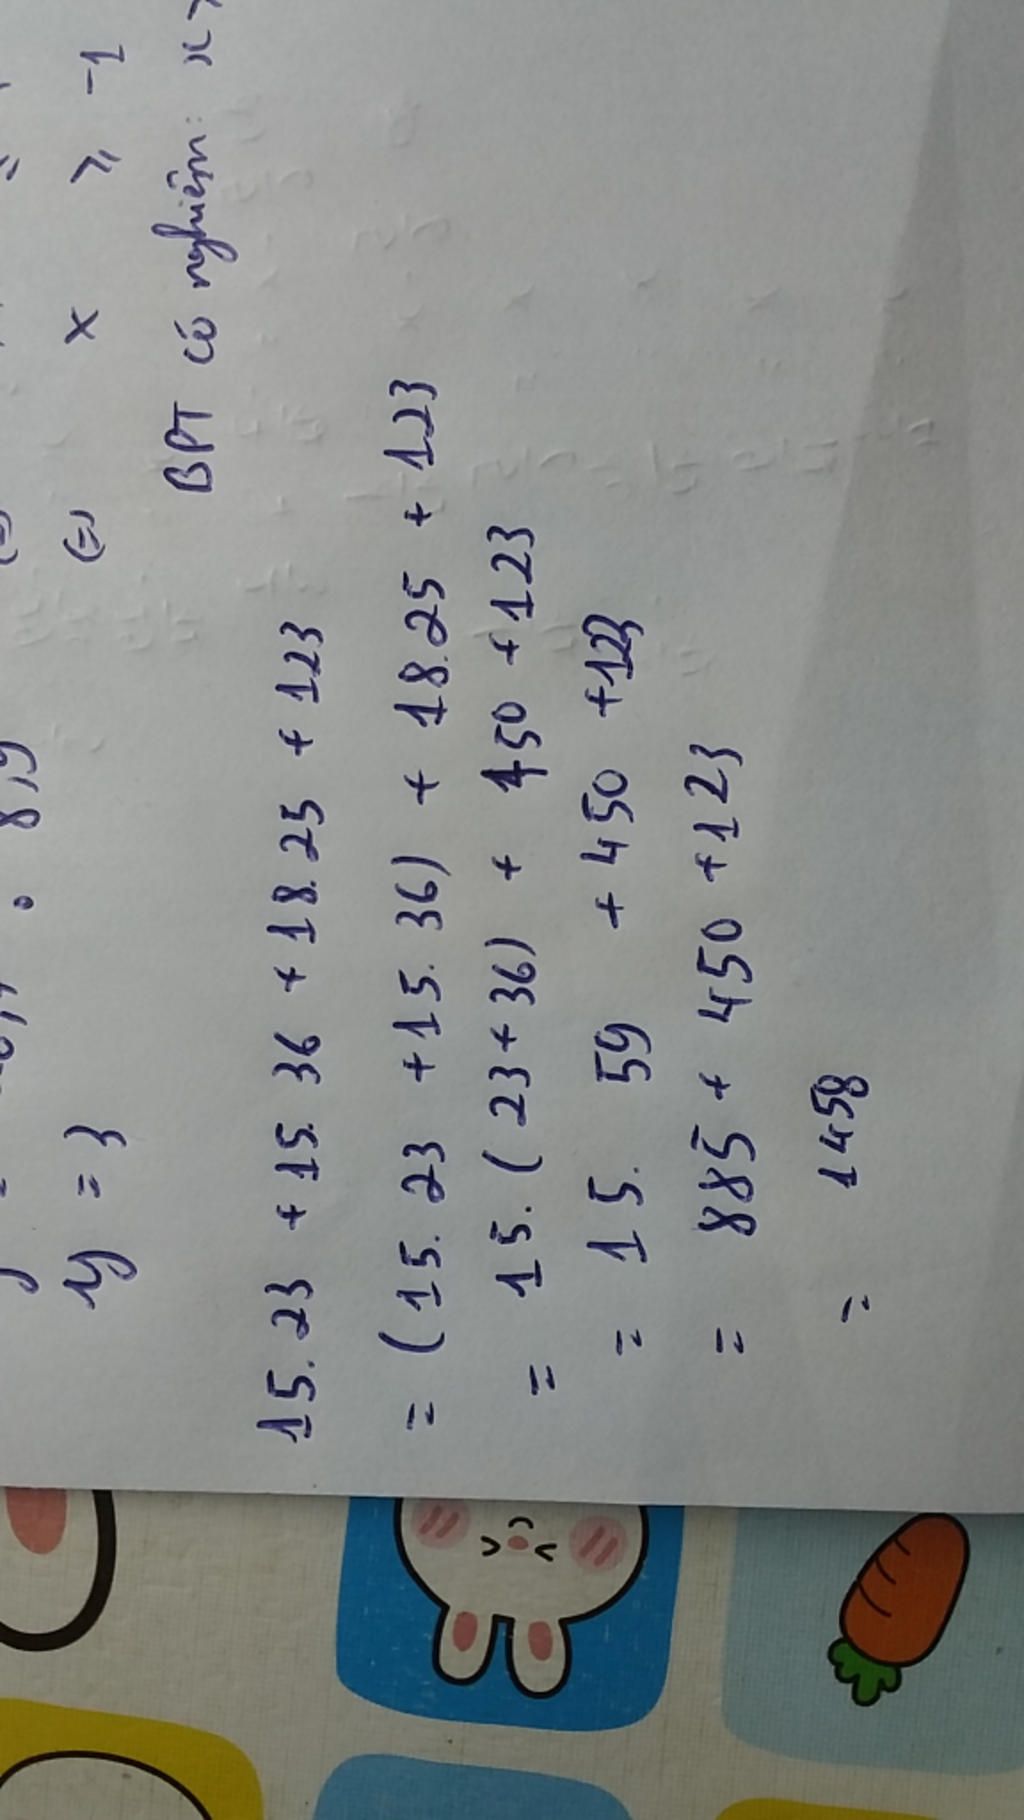 y = 3
(=) x ⩾ -1
BPT có nghiệm: x
15.23 + 15.36 + 18.25 + 123
= (15.23 + 15.36) + 18.25 + 123
= 15.(23+36) + 450 + 123
= 15. 59 + 450 + 123
= 885 + 450 + 123
= 1458